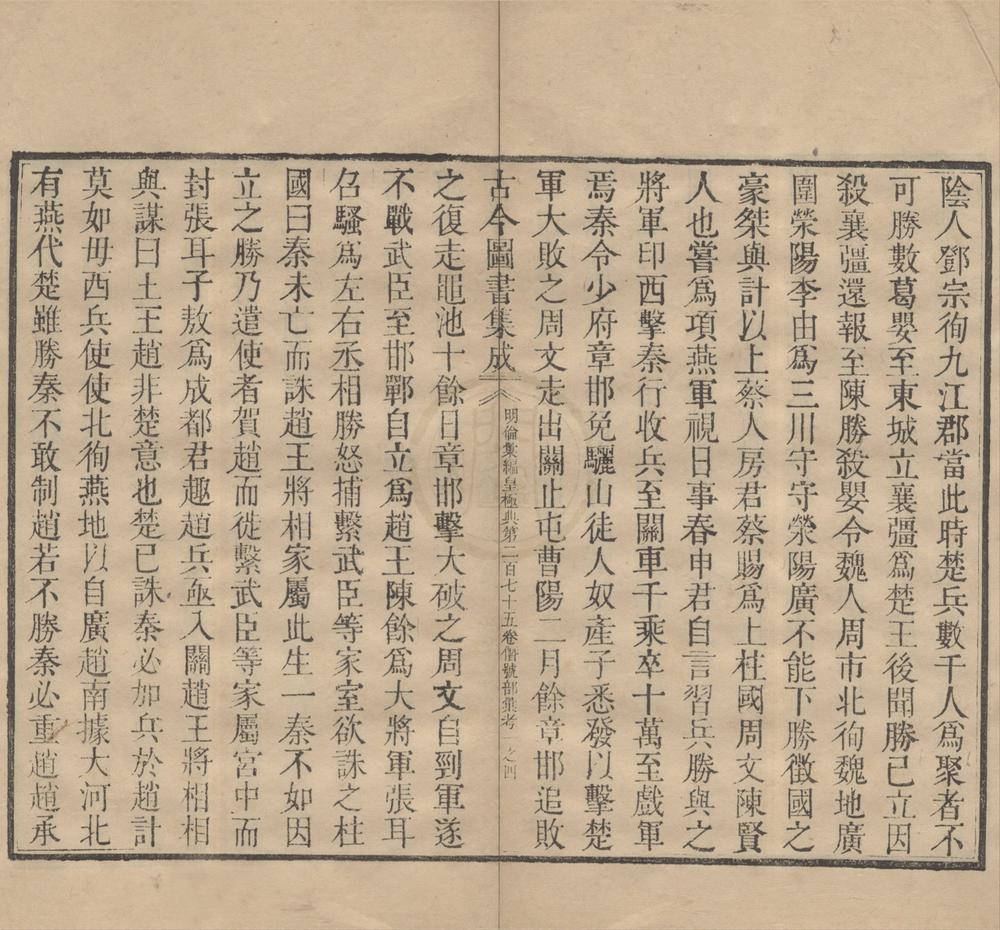 陰人鄧宗徇九江郡當此時楚兵數千人爲聚者不
可勝數葛嬰至東城立襄彊爲楚王後聞勝已立因
殺襄彊還報至陳勝殺嬰令魏人周市北徇魏地廣
圍滎陽李由爲三川守守滎陽廣不能下勝徵國之
豪桀與計以上蔡人房君蔡賜爲上柱國周文陳賢
人也嘗爲項燕軍視日事春申君自言習兵勝與之
將軍印西擊秦行收兵至關車千乘卒十萬至戲軍
焉秦令少府章邯免驪山徒人奴產子悉發以擊楚
軍大敗之周文走出關止屯曹陽二月餘章邯追敗
古今圖書集成 明倫彙編皇極典第二百七十五卷僭號部彙考一之四
之復走黽池十餘日章邯擊大破之周文自剄軍遂
不戰武臣至邯鄲自立爲趙王陳餘爲大將軍張耳
召騷爲左右丞相勝怒捕繫武臣等家室欲誅之柱
國曰秦未亡而誅趙王將相家屬此生一秦不如因
立之勝乃遣使者賀趙而徙繫武臣等家屬宮中而
封張耳子敖爲成都君趣趙兵亟入關趙王將相相
與謀曰王王趙非楚意也楚已誅秦必加兵於趙計
莫如毋西兵使使北徇燕地以自廣趙南據大河北
有燕代楚雖勝秦不敢制趙若不勝秦必重趙趙承